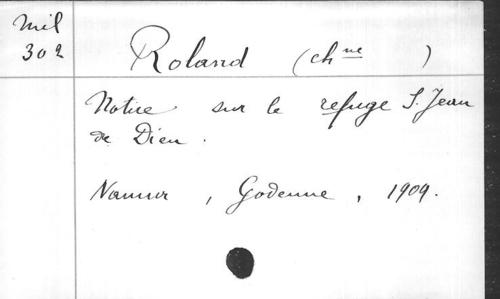 Mil
302
Roland (chne )
Notice sur le refuge S. Jean
de Dieu.
Namur, Godenne, 1909.